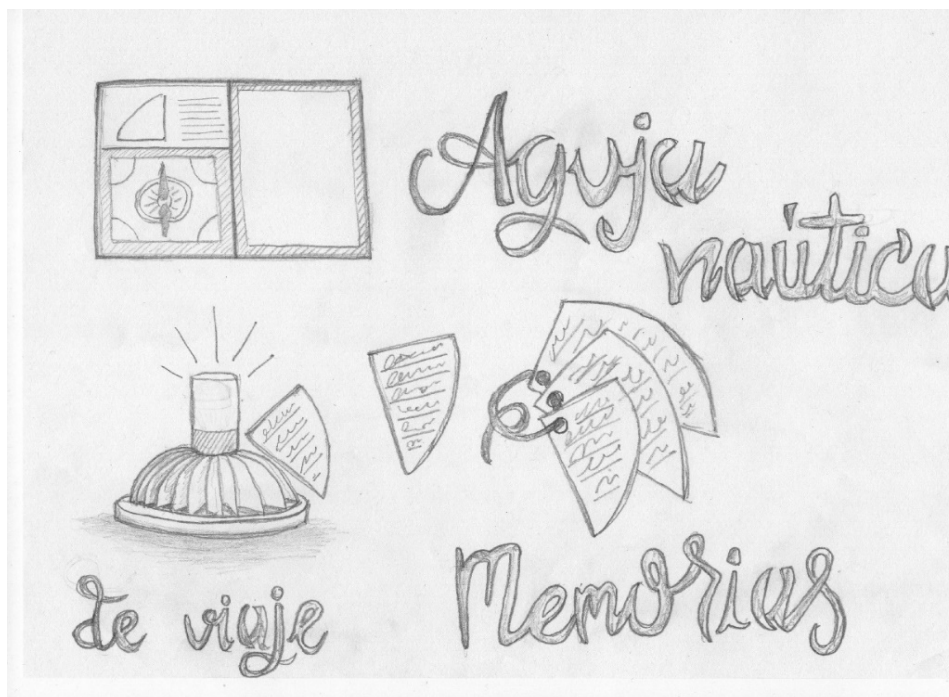 Aguja
naútica
de viaje
Memorias